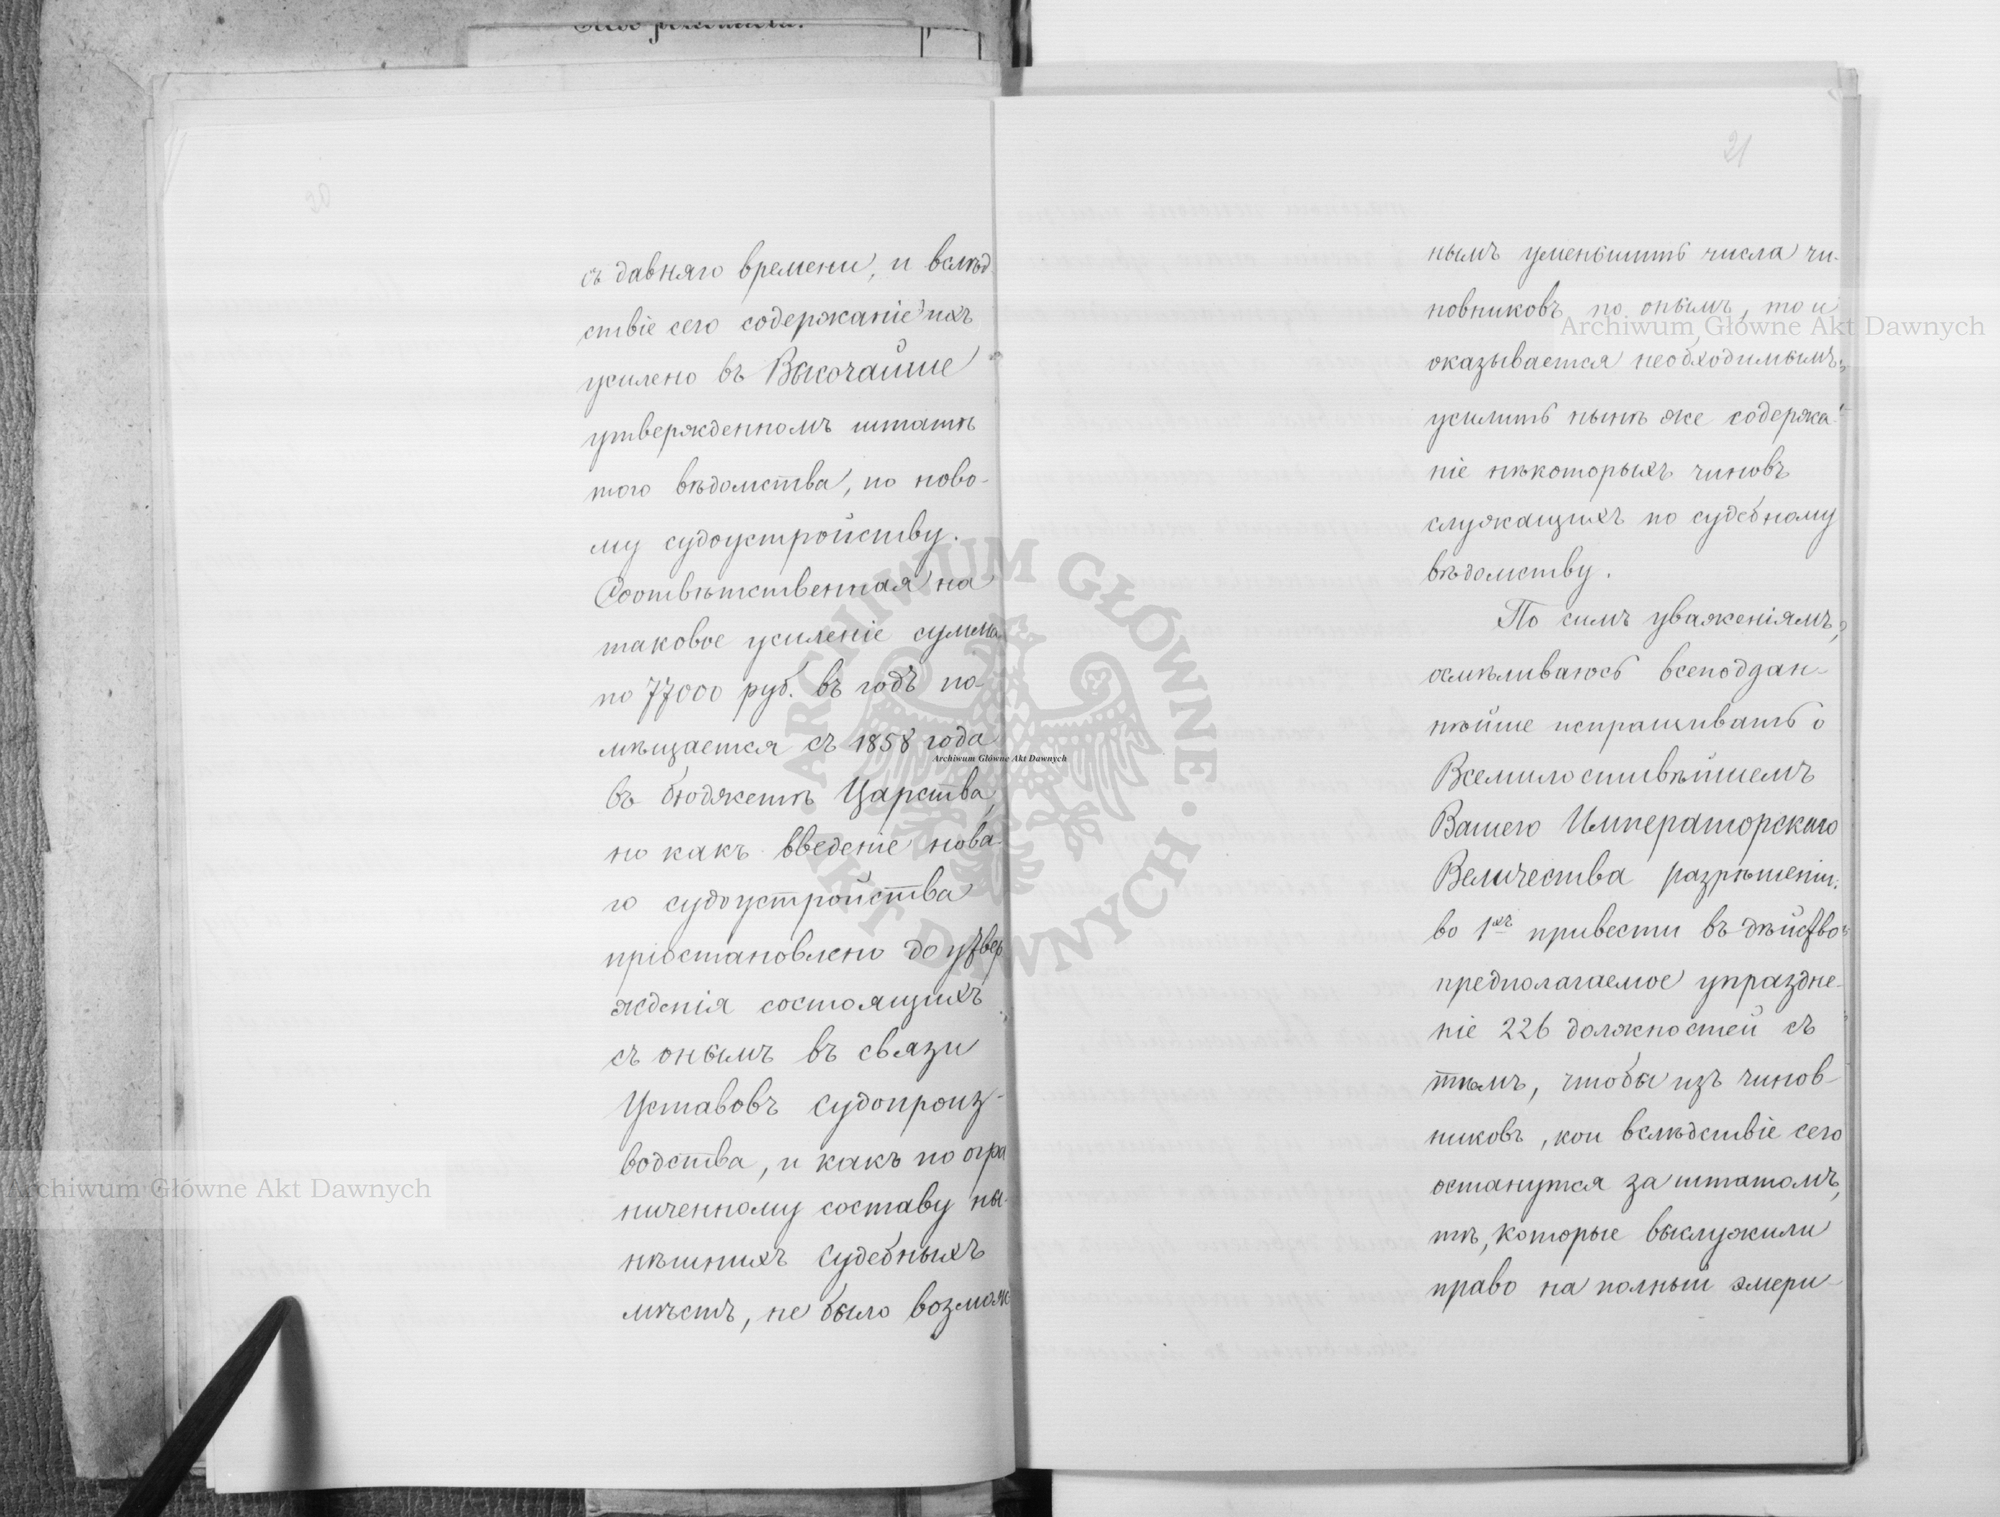 съ давняго времени, и вслѣд
ствіе сего содержаніе ихъ
усилено въ Высочайше
утвержденномъ штатѣ
того вѣдомства, по ново-
му судоустройству.
Соотвѣтственная на
таковое усиленіе сумма
по 77000 руб. въ годъ по-
мѣщается съ 1858 года
въ бюджетѣ Царства,
но какъ введеніе нова-
го судоустройства
пріостановлено до утвер
жденія состоящихъ
съ онымъ въ связи
Уставовъ судопроиз-
водства, и какъ по огра
ниченному составу ны-
нѣшнихъ судебныхъ
мѣстъ, не было возмож
21
нымъ уменьшить числа чи-
новниковъ по онымъ, то и
оказывается необходимымъ,
усилить нынѣ же содержа-
ніе нѣкоторыхъ чиновъ
служащихъ по судебному
вѣдомству.
По симъ уваженіямъ,
осмѣливаюсь всеподдан-
нѣйше испрашивать о
Всемилостивѣйшемъ
Вашего Императорскаго
Величества разрѣшеніи:
во 1хъ привести въ дѣйство
предполагаемое упраздне-
ніе 226 должностей съ
тѣмъ, чтобы изъ чинов-
никовъ, кои вслѣдствіе сего
останутся за штатомъ,
тѣ, которые выслужили
право на полный эмери-
Archiwum Główne Akt Dawnych
Archiwum Główne Akt Dawnych
Archiwum Główne Akt Dawnych
ARCHIWUM GŁÓWNE AKT DAWNYCH